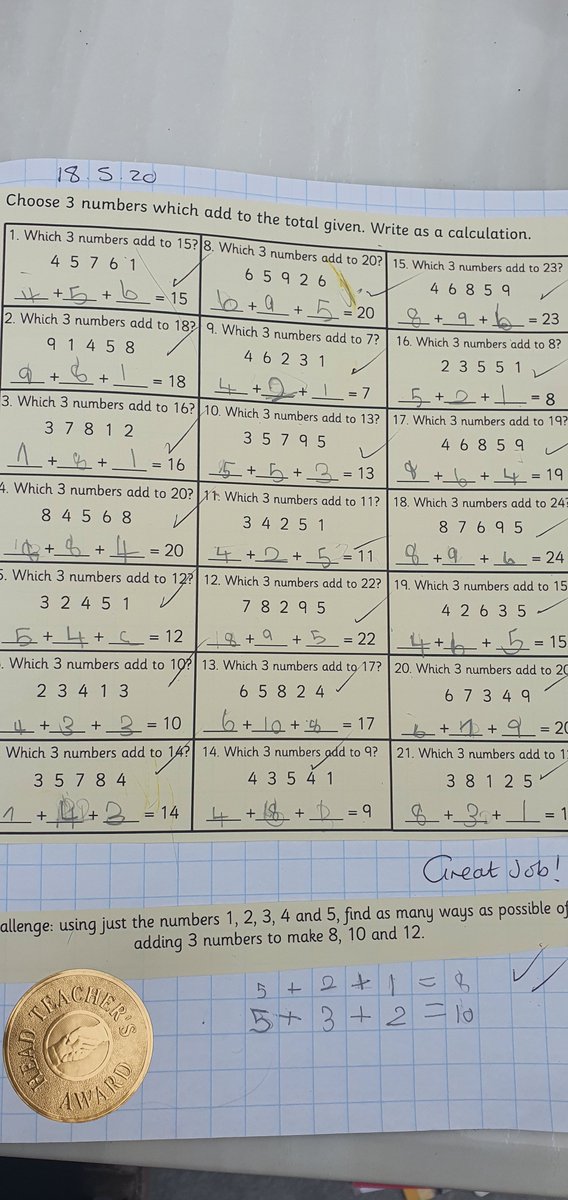 18.5.20
Choose 3 numbers which add to the total given. Write as a calculation.
1. Which 3 numbers add to 15?
4 5 7 6 1
4 + 5 + 6 = 15
2. Which 3 numbers add to 18?
9 1 4 5 8
9 + 8 + 1 = 18
3. Which 3 numbers add to 16?
3 7 8 1 2
+ 8 + 1 = 16
4. Which 3 numbers add to 20?
8 4 5 6 8
8 + 8 + 4 = 20
5. Which 3 numbers add to 12?
3 2 4 5 1
5 + 4 + = 12
. Which 3 numbers add to 10?
2 3 4 1 3
4 + 3 + 3 = 10
Which 3 numbers add to 14?
3 5 7 8 4
+ 4 + 3 = 14
8. Which 3 numbers add to 20?
6 5 9 2 6
6 + 9 + 5 = 20
9. Which 3 numbers add to 7?
4 6 2 3 1
4 + 2 + 1 = 7
10. Which 3 numbers add to 13?
3 5 7 9 5
5 + 5 + 3 = 13
11. Which 3 numbers add to 11?
3 4 2 5 1
4 + 2 + 5 = 11
12. Which 3 numbers add to 22?
7 8 2 9 5
8 + 9 + 5 = 22
13. Which 3 numbers add to 17?
6 5 8 2 4
6 + + 8 = 17
14. Which 3 numbers add to 9?
4 3 5 4 1
4 + + = 9
15. Which 3 numbers add to 23?
4 6 8 5 9
8 + 9 + 6 = 23
16. Which 3 numbers add to 8?
2 3 5 5 1
5 + 2 + 1 = 8
17. Which 3 numbers add to 19?
4 6 8 5 9
+ 6 + 4 = 19
18. Which 3 numbers add to 24?
8 7 6 9 5
8 + 9 + 6 = 24
19. Which 3 numbers add to 15
4 2 6 3 5
4 + 6 + 5 = 15
20. Which 3 numbers add to 20
6 7 3 4 9
+ + 9 = 20
21. Which 3 numbers add to 1
3 8 1 2 5
8 + 3 + 1 = 1
Great Job!
allenge: using just the numbers 1, 2, 3, 4 and 5, find as many ways as possible of
adding 3 numbers to make 8, 10 and 12.
5 + 2 + 1 = 8
5 + 3 + 2 = 10
HEAD TEACHER'S
AWARD